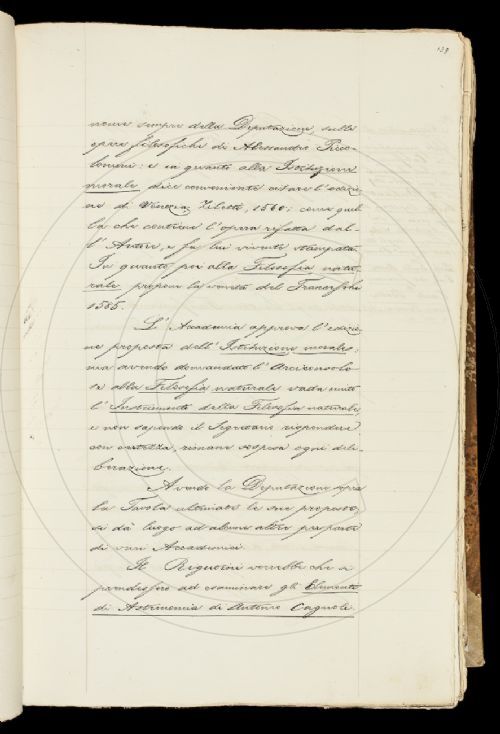 139
nome sempre della Deputazione, sulle
opere filosofiche di Alessandro Picco-
lomini: e in quanto alla Instituzione
morale dice conveniente citare l'edizio-
ne di Venezia, Ziletti, 1560; come quel-
la che contiene l'opera rifatta dal-
l'Autore, e fu lui vivente stampata.
In quanto poi alla Filosofia natu-
rale propone la veneta del Franceschi
1585.
L'Accademia approva l'edizio-
ne proposta dell'Istituzione morale;
ma avendo domandato l'Arciconsolo
se alla Filosofia naturale vada unito
l'Instrumento della Filosofia naturale,
e non sapendo il Segretario rispondere
con certezza, rimane sospesa ogni deli-
berazione.
Avendo la Deputazione sopra
la Tavola ultimate le sue proposte,
si dà luogo ad alcune altre proposte
di vari Accademici.
Il Rigutini vorrebbe che si
prendesse ad esaminare gli Elementi
di Astronomia di Antonio Cagnoli.